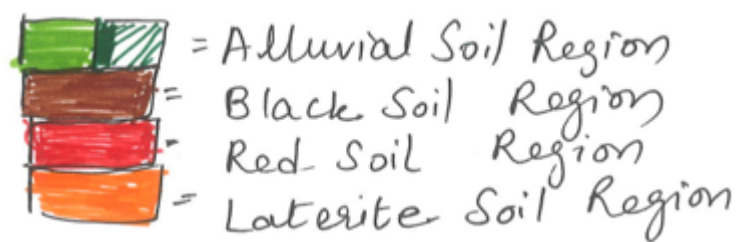 = Alluvial Soil Region
= Black Soil Region
- Red Soil Region
= Laterite Soil Region